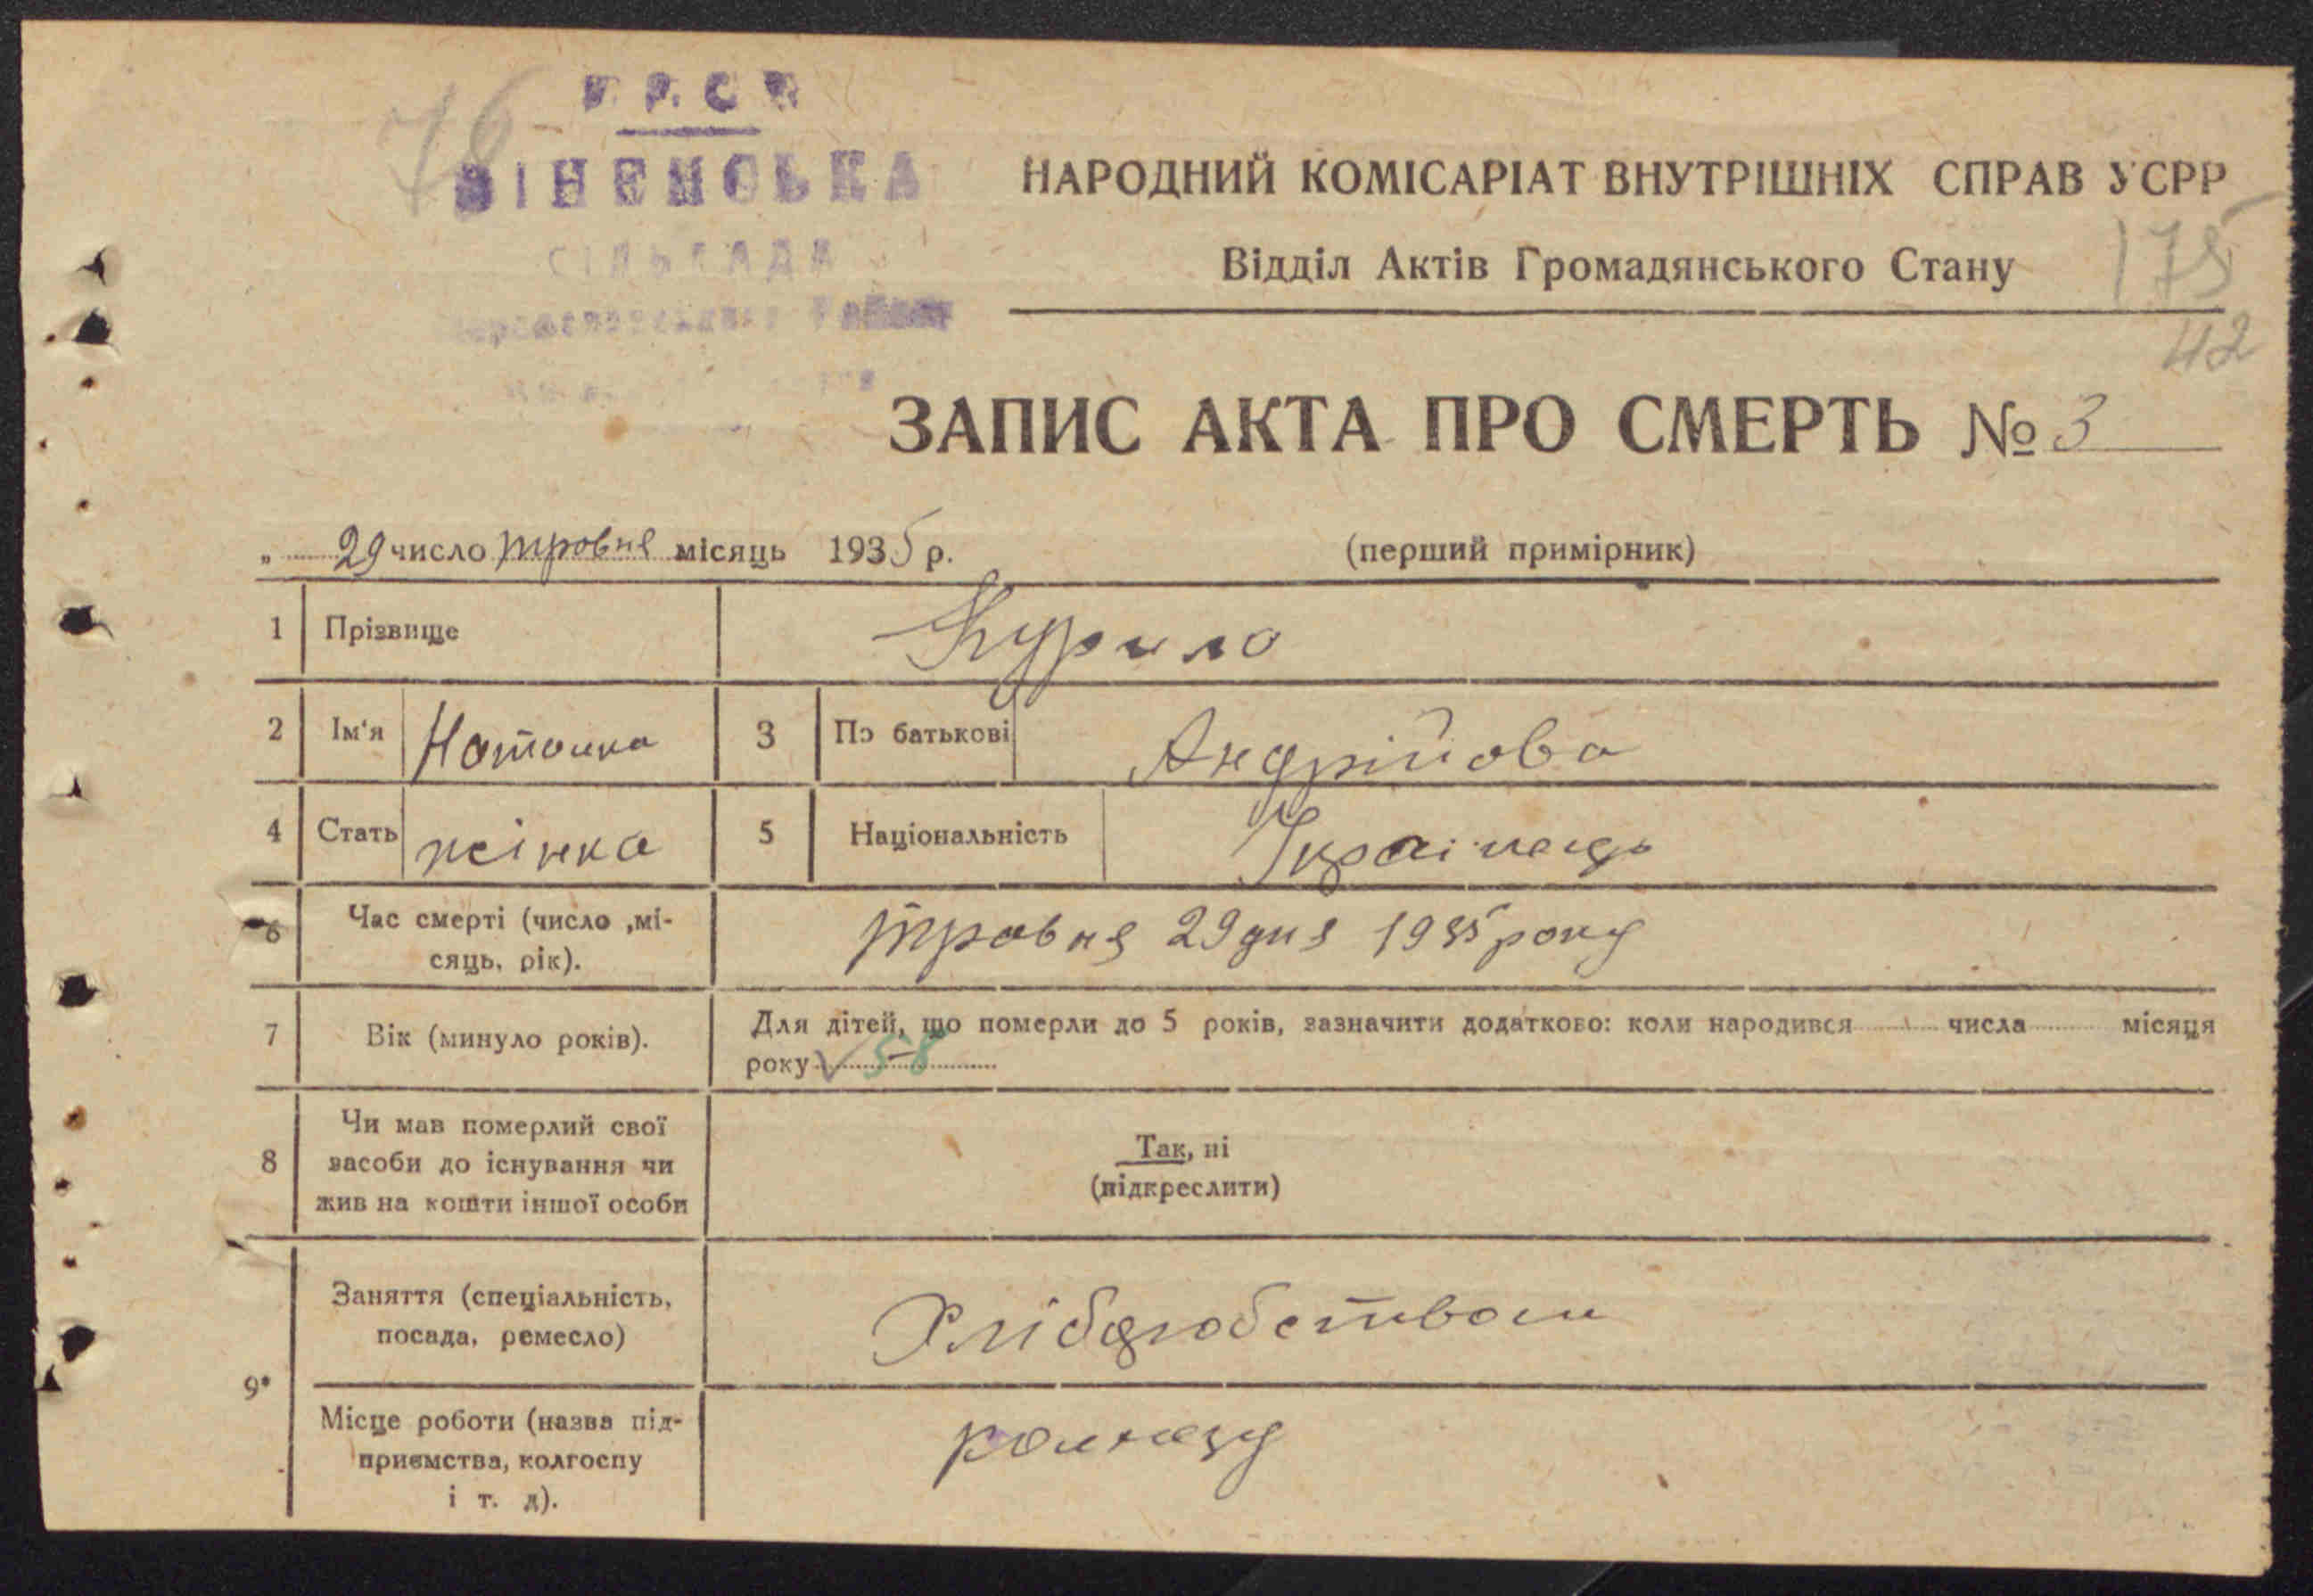 76
УРСР
СІЛЬРАДА
НАРОДНИЙ КОМІСАРІАТ ВНУТРІШНІХ СПРАВ УСРР
Відділ Актів Громадянського Стану
175
42
ЗАПИС АКТА ПРО СМЕРТЬ № 3
„ 29 число тровня місяць 1935 р. (перший примірник)
1 Прізвище Курило
2 Ім'я Наталка 3 По батькові Андрійова
4 Стать жінка 5 Національність Українець
6 Час смерті (число ,мі-
сяць, рік). тровня 29 дня 1935 року
7 Вік (минуло років). Для дітей, що померли до 5 років, зазначити додатково: коли народився числа місяця
року 58
8 Чи мав померлий свої
засоби до існування чи
жив на кошти іншої особи
Так, ні
(підкреслити)
9*
Заняття (спеціальність,
посада, ремесло)
Місце роботи (назва під-
приємства, колгоспу
і т. д).